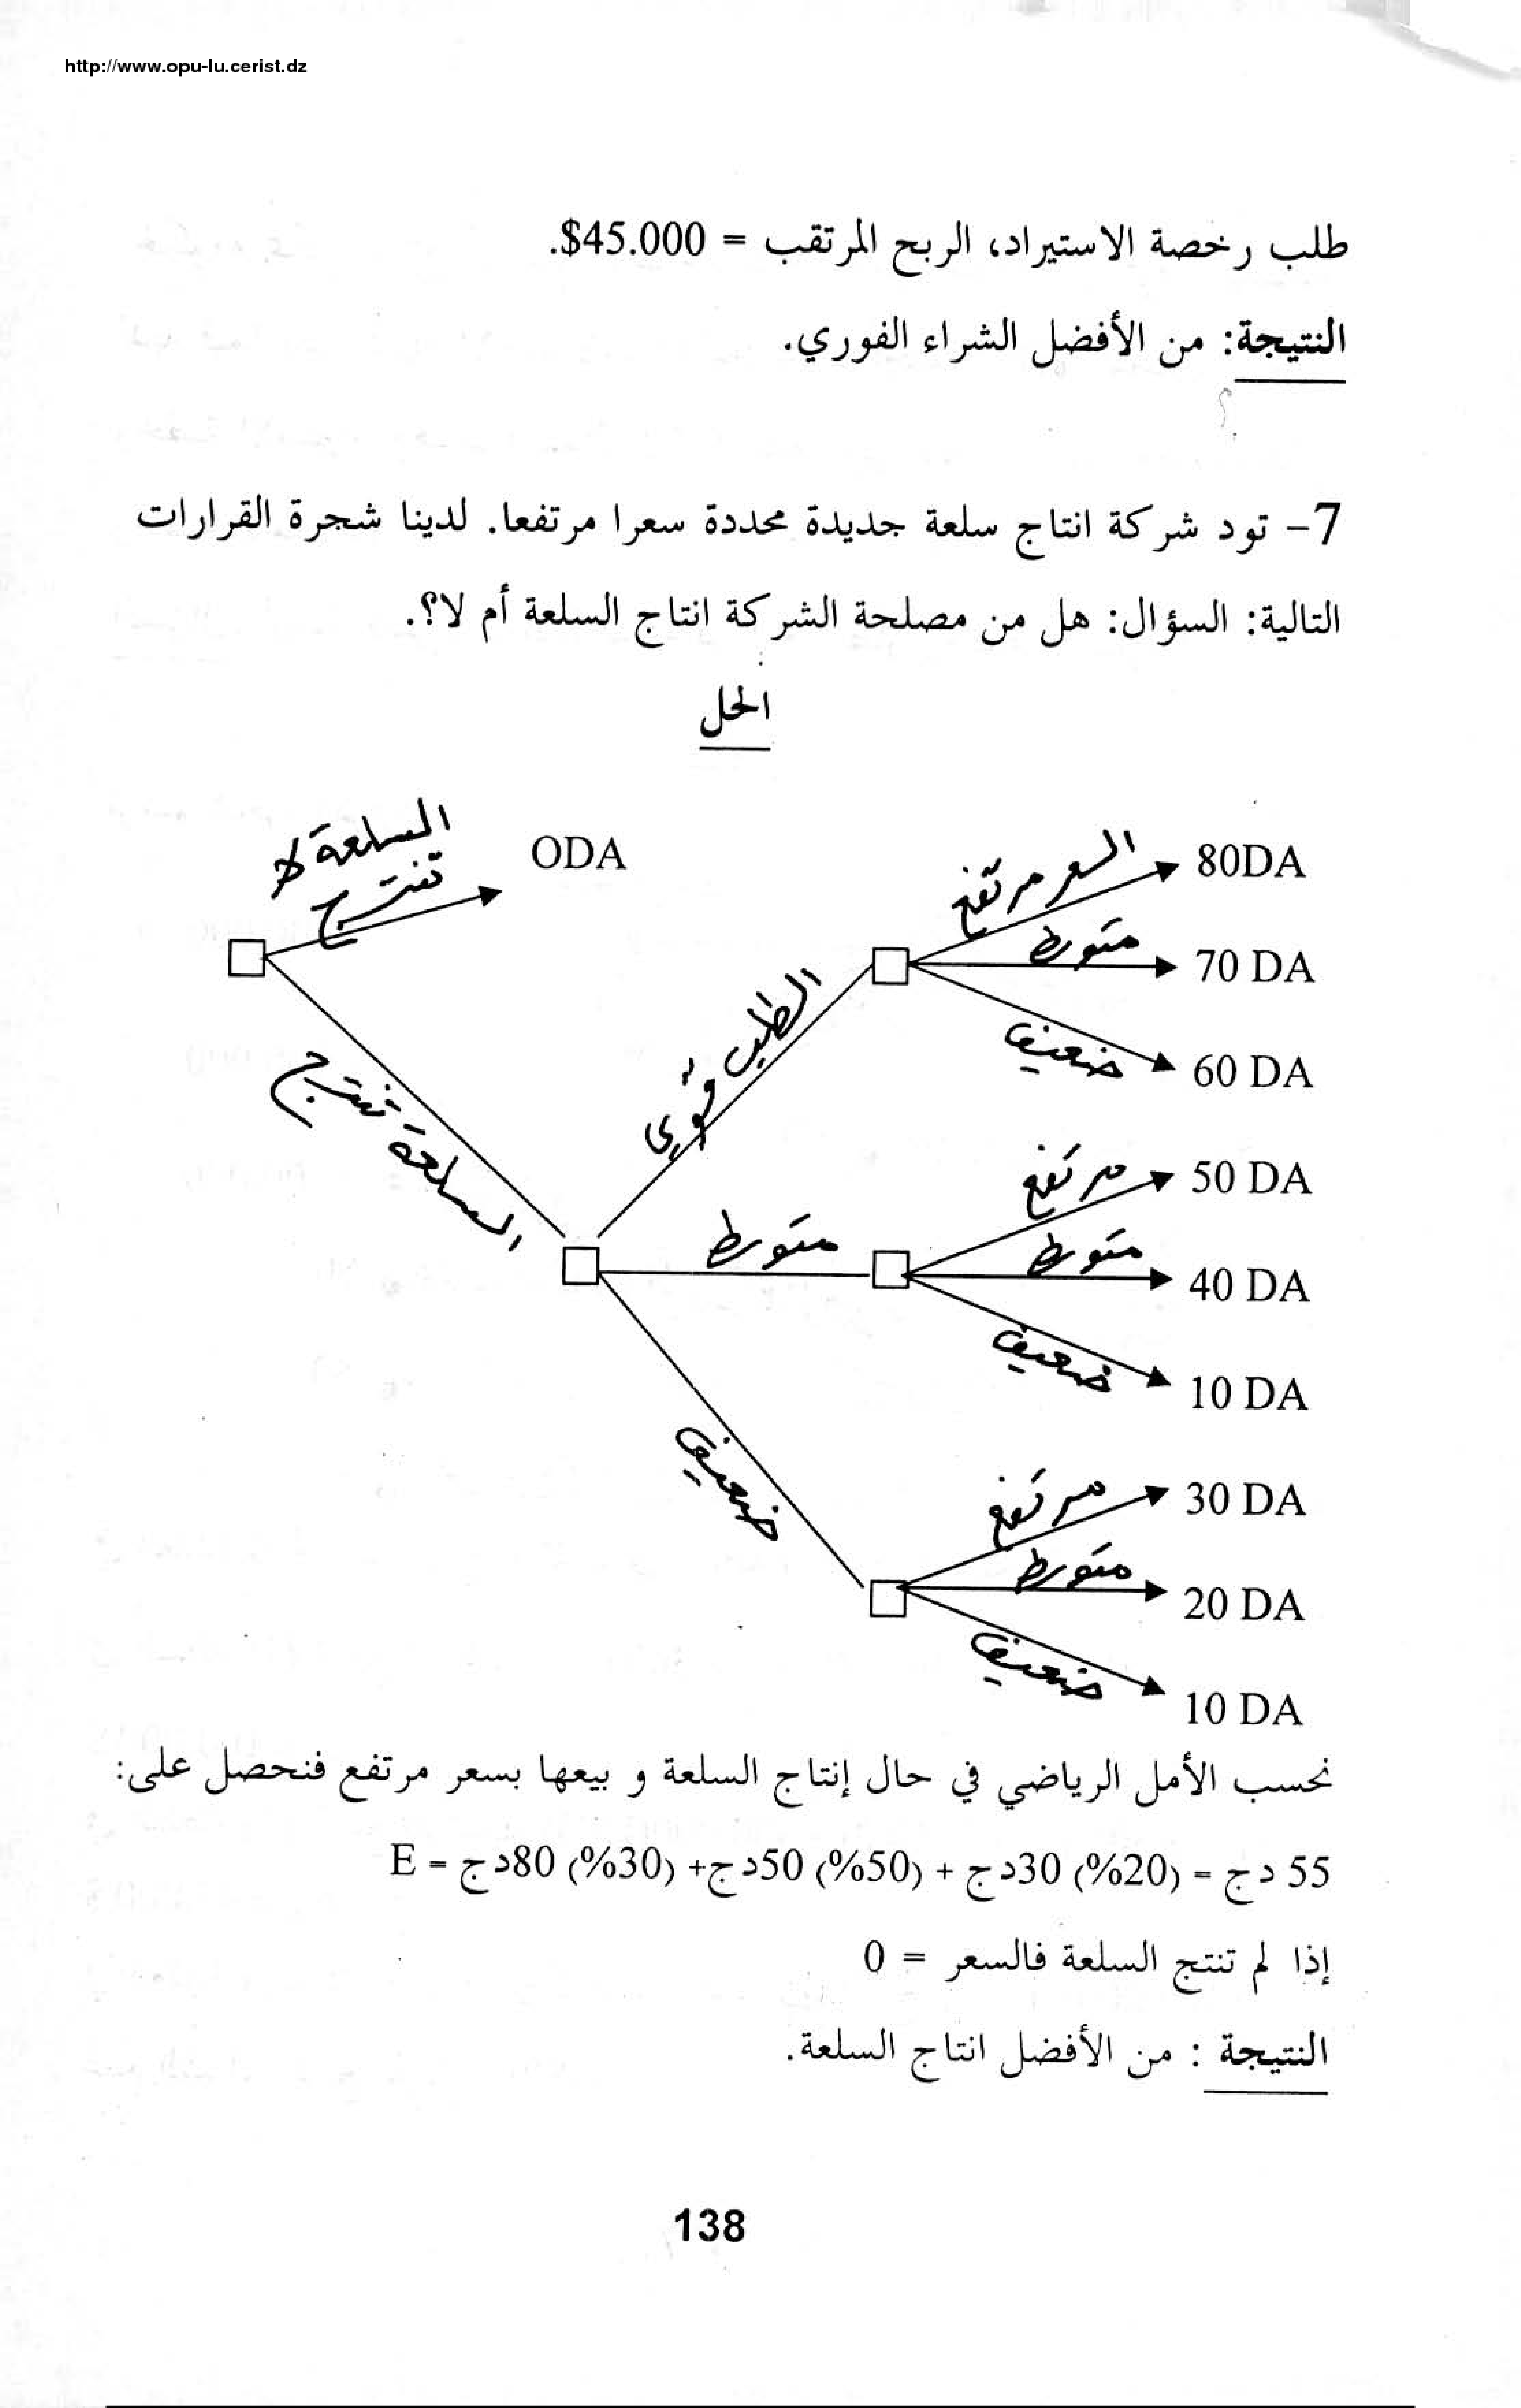 http://www.opu-lu.cerist.dz
طلب رخصة الاستيراد، الربح المرتقب = 45.000$.
النتيجة: من الأفضل الشراء الفوري.
7- تود شركة انتاج سلعة جديدة محددة سعرا مرتفعا. لدينا شجرة القرارات
التالية: السؤال: هل من مصلحة الشركة انتاج السلعة أم لا؟.
الحل
السلعة لا
تنتج
ODA
السلعة تنتج
الطلب قوي
السعر مرتفع
80DA
متوسط
70 DA
ضعيف
60 DA
متوسط
مرتفع
50 DA
متوسط
40 DA
ضعيف
10 DA
ضعيف
مرتفع
30 DA
متوسط
20 DA
ضعيف
10 DA
نحسب الأمل الرياضي في حال إنتاج السلعة و بيعها بسعر مرتفع فنحصل على:
55 دج = (20%) 30دج + (50%) 50دج+ (30%) 80دج = E
إذا لم تنتج السلعة فالسعر = 0
النتيجة : من الأفضل انتاج السلعة.
138